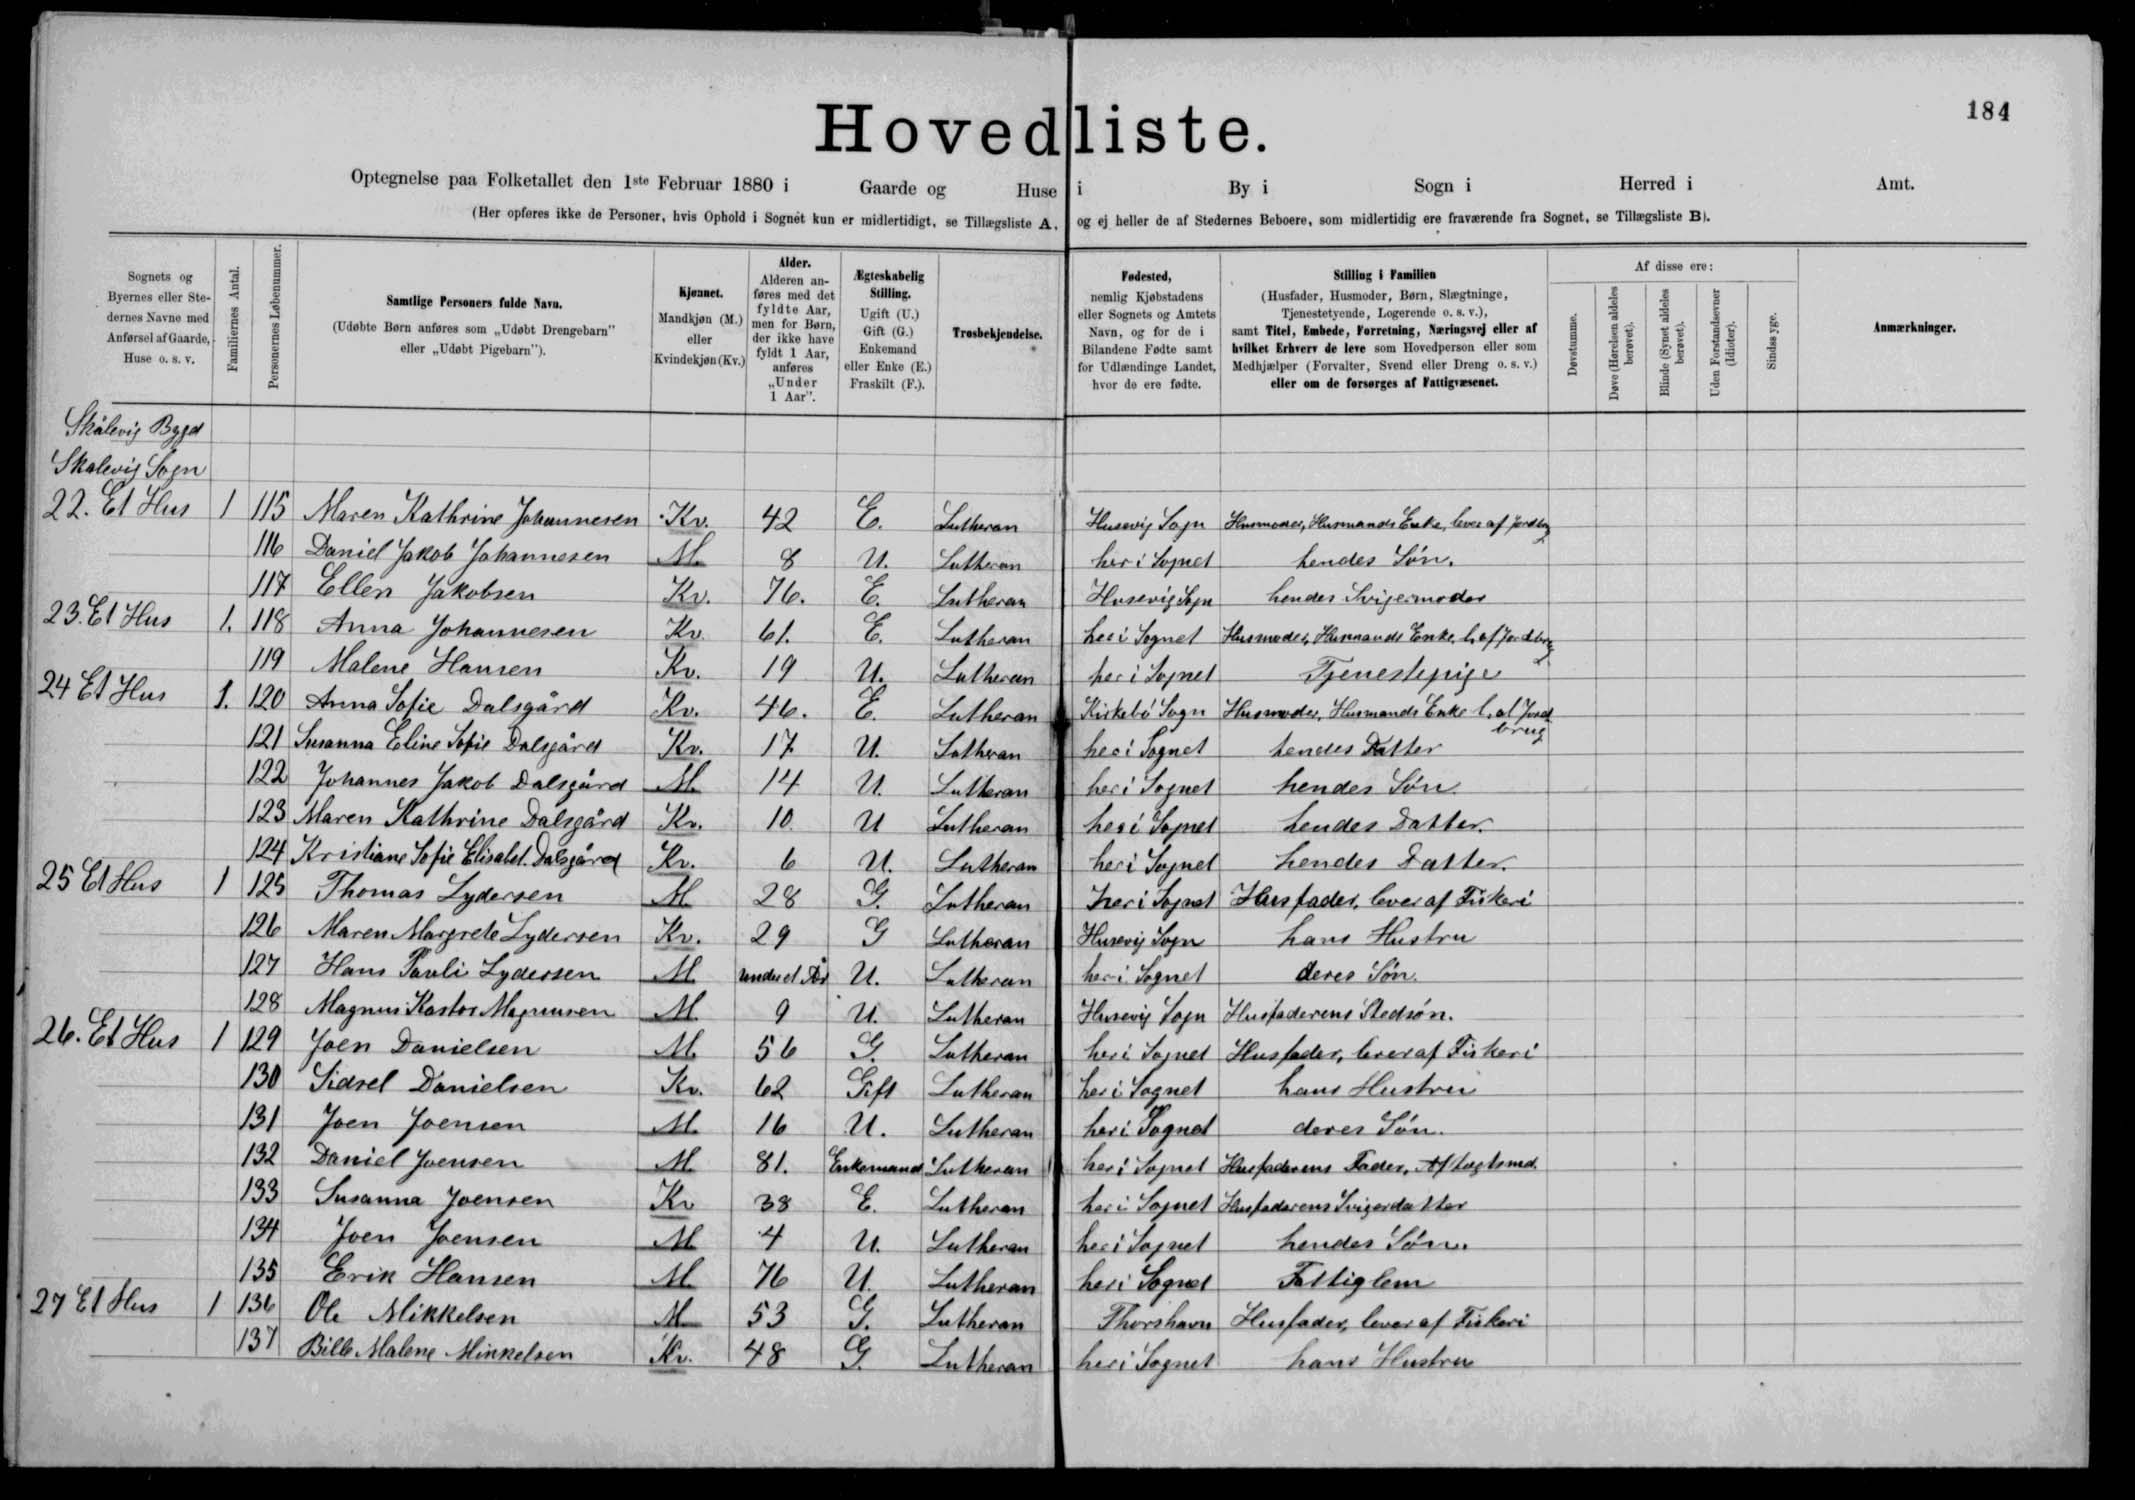 184
Hovedliste.
Optegnelse paa Folketallet den 1ste Februar 1880 i Gaarde og Huse i By i Sogn i Herred i Amt.
(Her opføres ikke de Personer, hvis Ophold i Sognet kun er midlertidigt, se Tillægsliste A, og ej heller de af Stedernes Beboere, som midlertidig ere fraværende fra Sognet, se Tillægsliste B).
Sognets og Byernes eller Stedernes Navne med Anførsel af Gaarde, Huse o. s. v.
Familiernes Antal.
Personernes Løbenummer.
Samtlige Personers fulde Navn.
(Udøbte Børn anføres som „Udøbt Drengebarn" eller „Udøbt Pigebarn").
Kjønnet.
Mandkjøn (M.) eller Kvindekjøn (Kv.)
Alder.
Alderen anføres med det fyldte Aar, men for Børn, der ikke have fyldt 1 Aar, anføres „Under 1 Aar".
Ægteskabelig Stilling.
Ugift (U.) Gift (G.) Enkemand eller Enke (E.) Fraskilt (F.).
Trosbekjendelse.
Fødested,
nemlig Kjøbstadens eller Sognets og Amtets Navn, og for de i Bilandene Fødte samt for Udlændinge Landet, hvor de ere fødte.
Stilling i Familien
(Husfader, Husmoder, Børn, Slægtninge, Tjenestetyende, Logerende o. s. v.), samt Titel, Embede, Forretning, Næringsvej eller af hvilket Erhverv de leve som Hovedperson eller som Medhjælper (Forvalter, Svend eller Dreng o. s. v.) eller om de forsørges af Fattigvæsenet.
Af disse ere:
Døvstumme.
Døve (Hørelsen aldeles berøvet).
Blinde (Synet aldeles berøvet).
Uden Forstandsevner (Idioter).
Sindssyge.
Anmærkninger.
Skålevig Bygd
Skalevig Sogn
22. Et Hus 1 115 Maren Kathrine Johannesen Kv. 42 E. Lutheran Husevig Sogn Husmoder, Husmands Enke, lever af Jordbrug
116 Daniel Jakob Johannesen M. 8 U. Lutheran her i Sognet hendes Søn.
117 Ellen Jakobsen Kv. 76. E. Lutheran Husevig Sogn hendes Svigermoder
23. Et Hus 1. 118 Anna Johannesen Kv. 61. E. Lutheran her i Sognet Husmoder, Husmands Enke, l. af Jordbrug
119 Malene Hansen Kv. 19 U. Lutheran her i Sognet Tjenestepige
24 Et Hus 1. 120 Anna Sofie Dalsgård Kv. 46. E. Lutheran Kirkebö Sogn Husmoder, Husmands Enke l. af Jordbrug
121 Susanna Eline Sofie Dalsgård Kv. 17 U. Lutheran her i Sognet hendes Datter
122 Johannes Jakob Dalsgård M. 14 U. Lutheran her i Sognet hendes Søn
123 Maren Kathrine Dalsgård Kv. 10. U Lutheran her i Sognet hendes Datter.
124 Kristiane Sofie Elisabet. Dalsgård Kv. 6 U. Lutheran her i Sognet hendes Datter.
25 Et Hus 1 125 Thomas Lydersen M 28 G. Lutheran her i Sognet Husfader, lever af Fiskeri
126 Maren Margrete Lydersen Kv. 29 G Lutheran Husevig Sogn hans Hustru
127 Hans Pauli Lydersen M under 1 År U. Lutheran her i Sognet deres Søn.
128 Magnus Kastor Magnusen M. 9 U. Lutheran Husevig Sogn Husfaderens Stedsøn.
26. Et Hus 1 129 Joen Danielsen M. 56 G. Lutheran her i Sognet Husfader, lever af Fiskeri
130 Sidsel Danielsen Kv. 62 Gift Lutheran her i Sognet hans Hustru
131 Joen Joensen M. 16 U. Lutheran her i Sognet deres Søn.
132 Daniel Joensen M. 81. Enkemand Lutheran her i Sognet Husfaderens Fader, Aftægtsmd.
133 Susanna Joensen Kv 38 E. Lutheran her i Sognet Husfaderens Svigerdatter
134 Joen Joensen M 4 U. Lutheran her i Sognet hendes Søn.
135 Erik Hansen M. 76 U. Lutheran her i Sognet Fattiglem
27 Et Hus 1 136 Ole Mikkelsen M 53 G. Lutheran Thorshavn Husfader, lever af Fiskeri
137 Bille Malene Mikkelsen Kv. 48 G. Lutheran her i Sognet hans Hustru